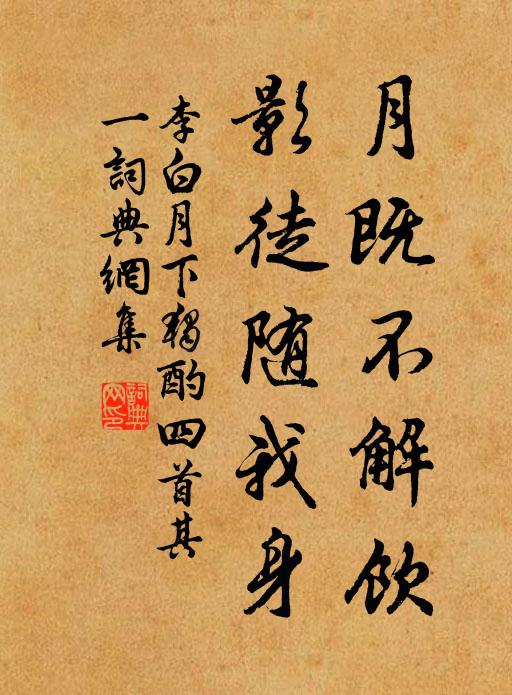 月既不解飲
影徒随我身
李白月下獨酌四首其
一詞典網集
詞典網印